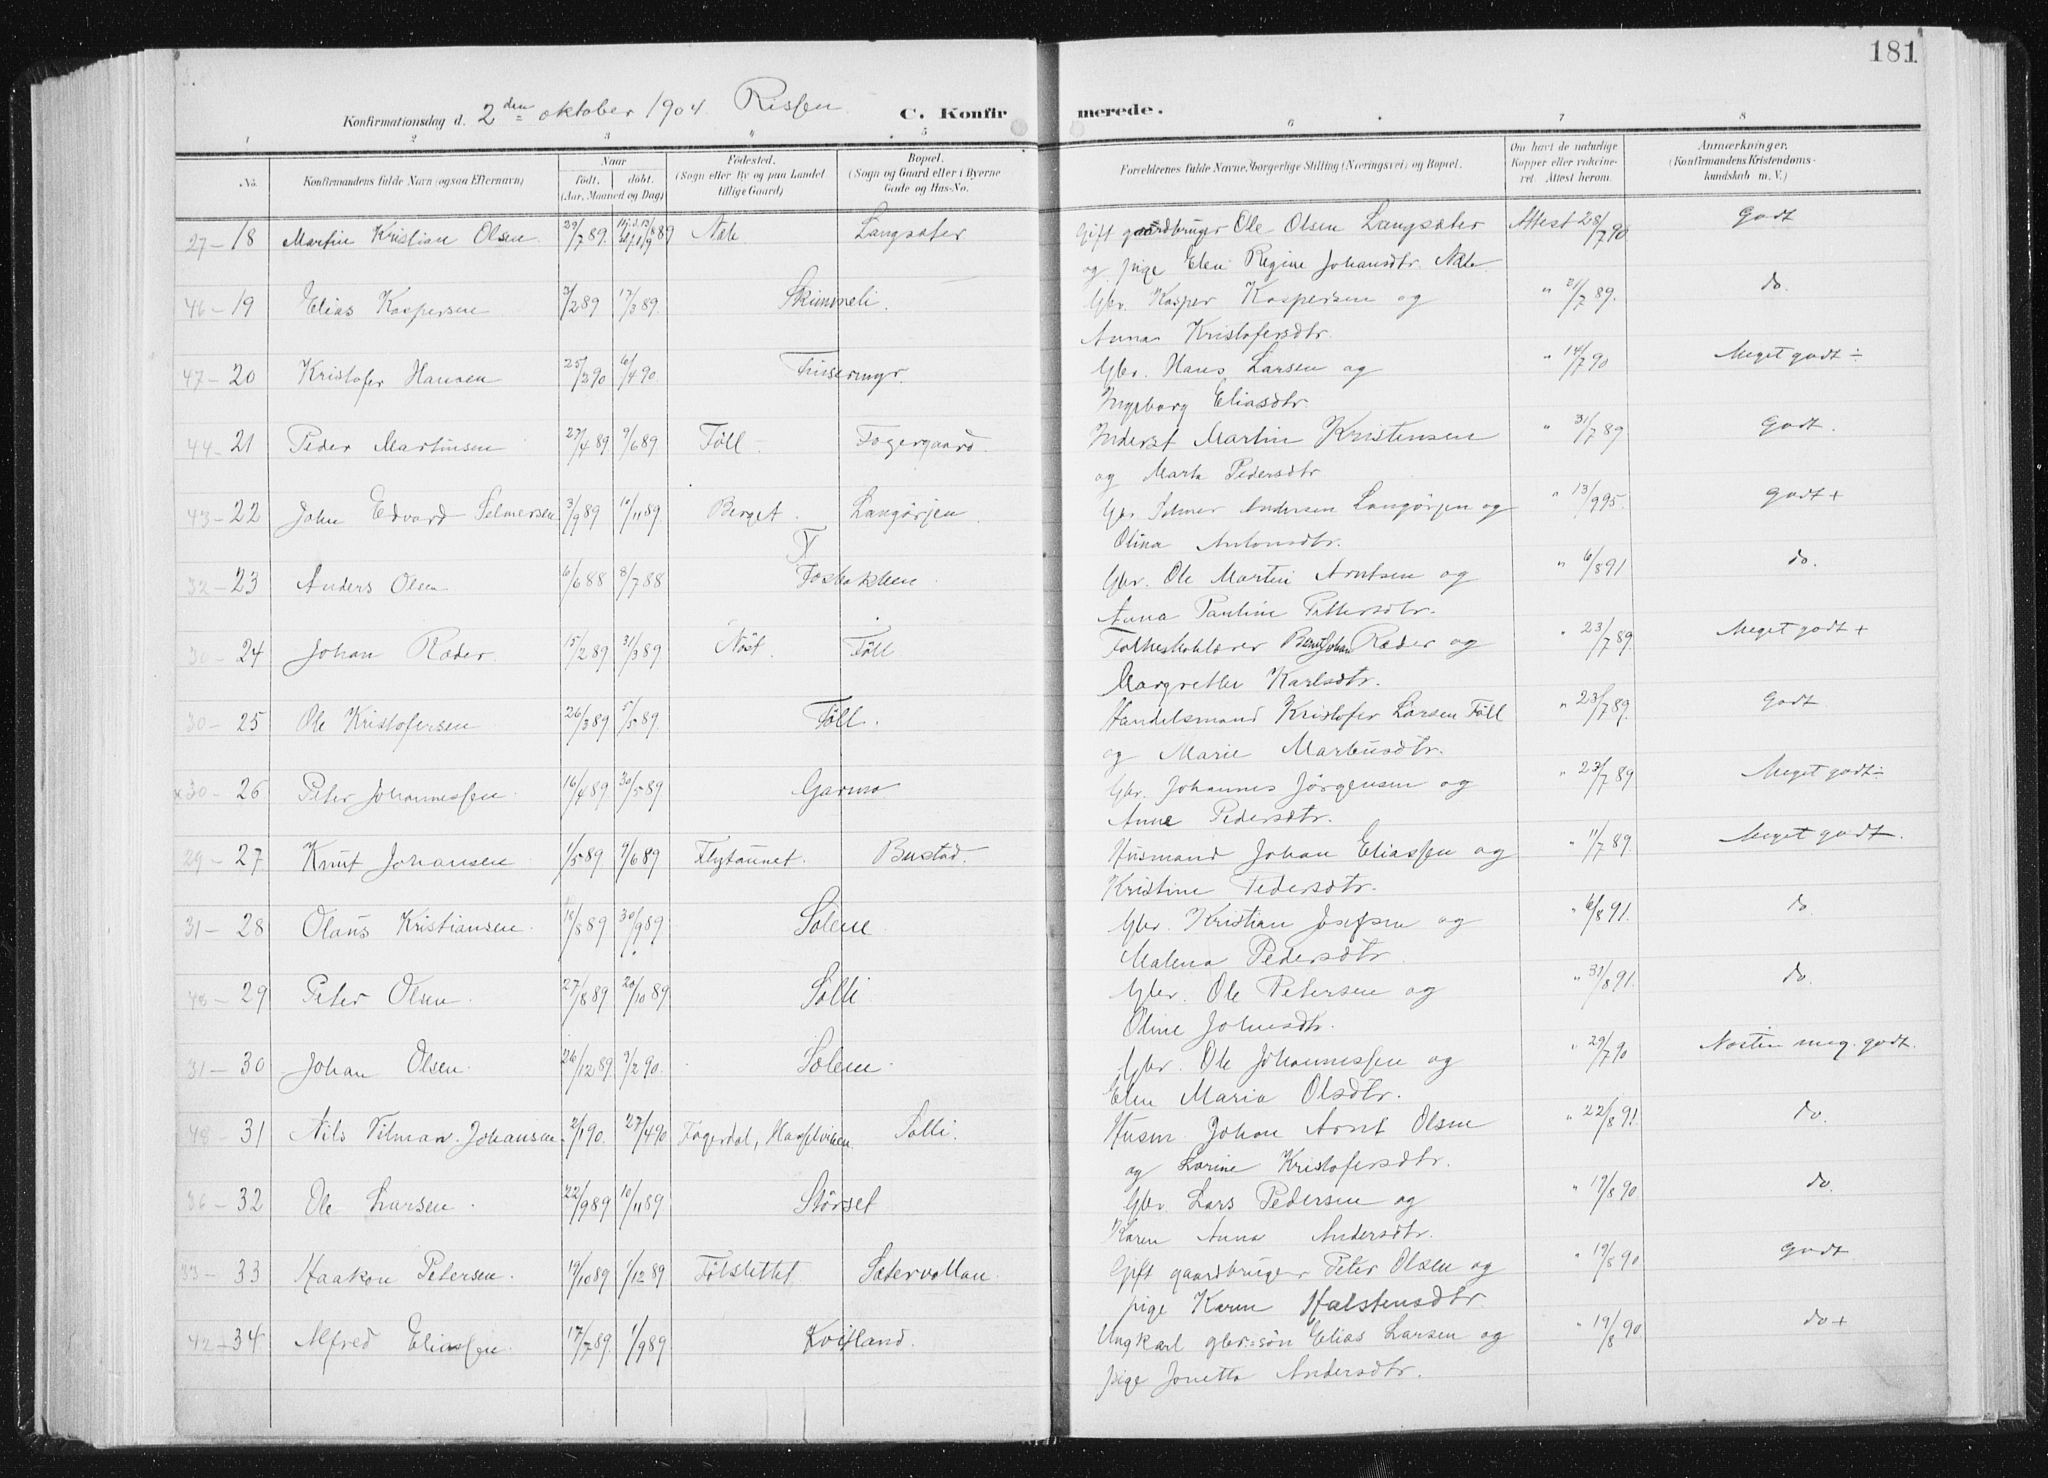 181
Konfirmationsdag d. 2den oktober 1904. Rissen C. Konfirmerede.
1 2 3 4 5 6 7 8
No. Konfirmandens fulde Navn (ogsaa Efternavn) Naar født, døbt. (Aar, Maaned og Dag) Fødested. (Sogn eller By og paa Landet tillige Gaard) Bopæl. (Sogn og Gaard eller i Byerne Gade og Hus-No. Forældrenes fulde Navne, borgerlige Stilling (Næringsvei) og Bopæl. Om havt de naturlige Kopper eller vaksineret. Attest herom. Anmærkninger. (Konfirmandens Kristendomskundskab m. V.)
27 - 18 Martin Kristian Olsen 29/7 89. Næb Langsæter Gift gaardbruger Ole Olsen Langsæter Attest 28/7 90 Godt
og pige Elen Regine Johansdtr. Næb
46 - 19 Elias Kaspersen 3/2 89 17/3 89. Skimmeli. Gbr. Kasper Kaspersen og " 21/7 89. do.
Anna Kristofersdtr.
47 - 20 Kristofer Hansen 25/2 90 6/4 90. Finsermyr. Gbr. Hans Larsen og " 14/7 90 Meget godt ÷
Ingeborg Eliasdtr.
44 - 21 Peder Martinsen 27/4 89 9/6 89 Föll Fagergaard. Inderst Martin Kristensen " 31/7 89 Godt.
og Marta Pedersdtr
43 - 22 John Edvard Selmersen 3/9 89 10/11 89 Berget. Langörjen Gbr Selmer Andersen Langörjen og " 13/9 95. Godt +
Olina Antonsdtr.
32 - 23 Anders Olsen 6/6 88 8/7 88 Fosbakken. Gbr. Ole Martin Arntsen og " 6/8 91 do.
Anna Pauline Pettersdtr.
30 - 24 Johan Ræder. 15/2 89 31/3 89 Nöst. Föll Folkeskolelærer Bernt Johan Ræder og " 23/7 89. Meget godt +
Margrethe Karlsdtr.
30 - 25 Ole Kristofersen 26/3 89 5/5 89. Föll. Handelsmand Kristofer Larsen Föll " 23/7 89. Godt
og Marie Marteusdtr.
30 - 26 Peter Johannessen. 16/4 89 30/5 89 Garmo Gbr. Johannes Jörgensen og " 23/7 89 Meget godt ÷
Anne Pedersdtr.
29 - 27 Knut Johansen 1/5 89 9/6 89 Flytaunet. Bustad. Husmand Johan Eliassen og " 11/7 89 Meget godt.
Kristine Pedersdtr.
31 - 28 Olaus Kristiansen. 18/8 89 30/9 89. Solem. Gbr. Kristian Josefsen og " 6/8 91. do
Malena Pedersdtr.
48 - 29 Peter Olsen. 27/8 89 20/10 89 Solli Gbr. Ole Petersen og " 31/8 91. do.
Oline Johnsdtr.
31 - 30 Johan Olsen. 26/12 89. 9/2 90. Solem. Gbr. Ole Johannessen og " 29/7 90 Næsten meg. godt.
Elen Maria Olsdtr.
48 - 31 Nils Vilman Johansen 2/1 90. 27/4 90 Fagerdal, Hasselviken Solli. Husm. Johan Arnt Olsen " 22/8 91. do.
og Larine Kristofersdtr.
36 - 32 Ole Larsen. 22/9 89 10/11 89 Störset Gbr. Lars Pedersen og " 19/8 90 do.
Karen Anna Andersdtr.
33 - 33 Haakon Petersen. 19/10 89 1/12 89 Fölslettet Sætervollan. Gift gaardbruger Peter Olsen og " 19/8 90 Godt
pige Karen Halstensdtr
42 - 34 Alfred Eliassen. 17/7 89. 1/9 89 Kvitland. Ungkarl gbr.sön Elias Larsen og " 19/8 90 do +
pige Jonetta Andersdtr.